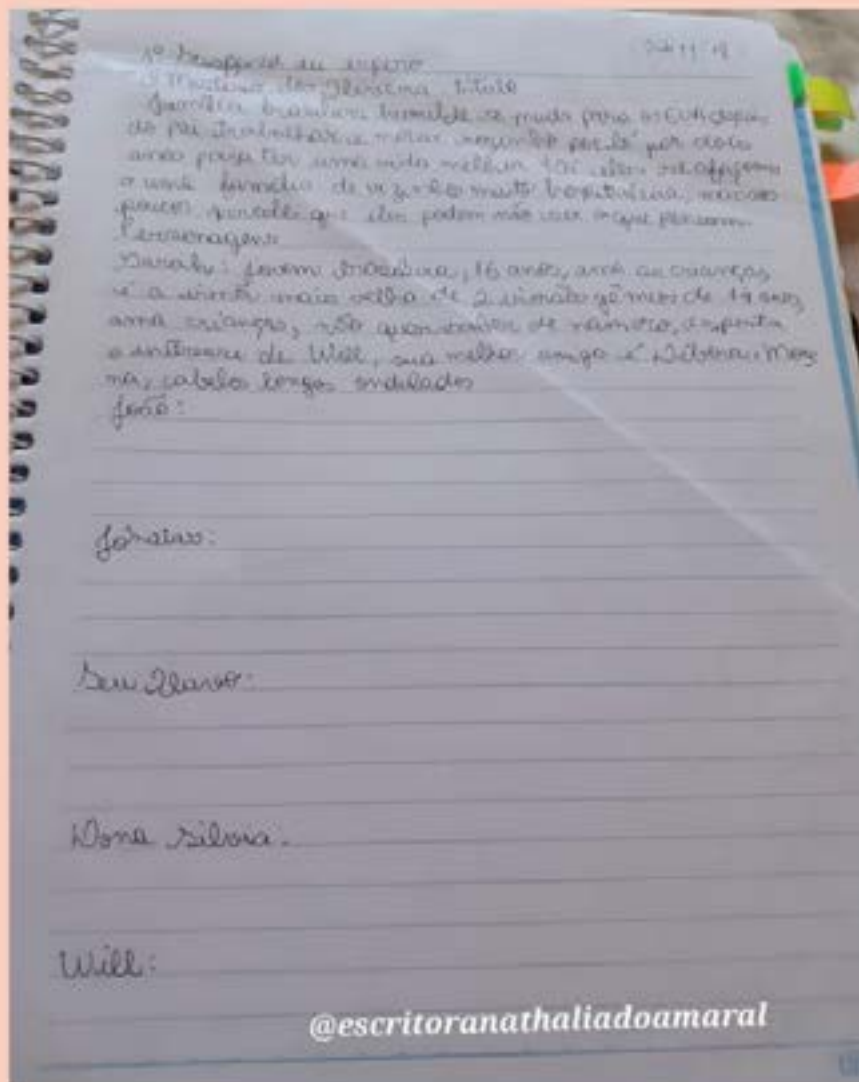 família brasileira humilde se muda para os EUA depois
do pai trabalhar e morar sozinho por lá por dois
anos para ter uma vida melhor lá eles se apegam
a uma família de vizinhos muito hospitaleira, mas aos
poucos percebe que eles podem não ser o que pensam.
Personagens
Sarah: jovem brasileira, 16 anos, ama as crianças,
é a irmã mais velha de 2 irmãos gêmeos de 14 anos,
ama crianças, não quer saber de namoro, desperta
o interesse de Will, sua melhor amiga é Débora. More
na, cabelos longos ondulados
João:
Jonatas:
Seu
Dona Silvia.
Will:
@escritoranathaliadoamaral